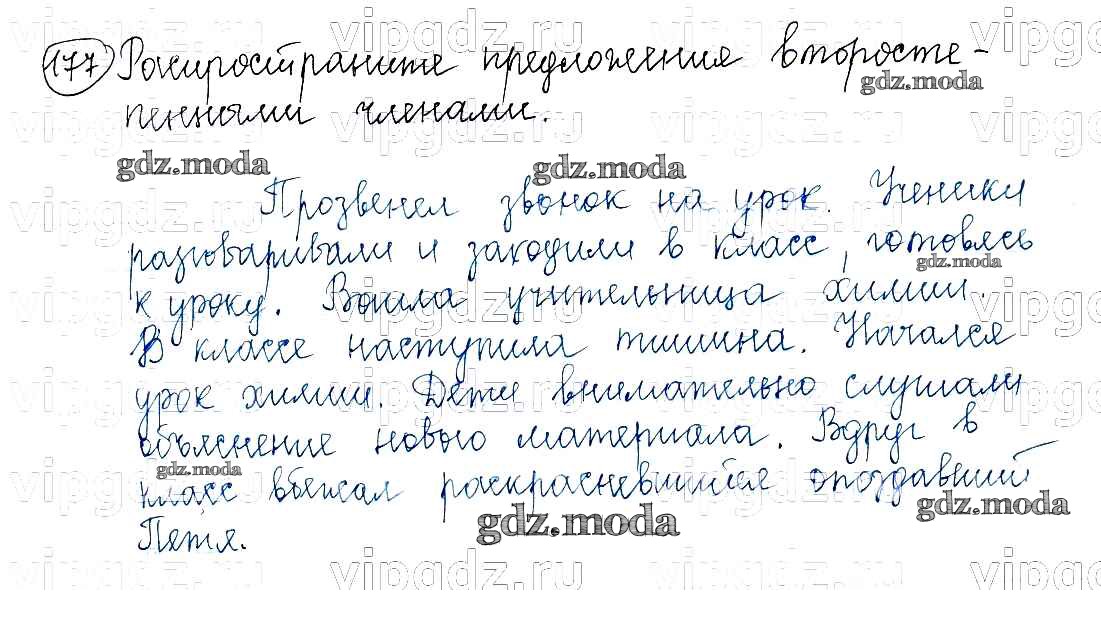 177 Распространите предложения второсте-
пенными членами.
Прозвенел звонок на урок. Ученики
разговаривали и заходили в класс, готовясь
к уроку. Вошла учительница химии.
В классе наступила тишина. Начался
урок химии. Дети внимательно слушали
объяснение нового материала. Вдруг в
класс вбежал раскрасневшийся опоздавший
Петя.
vipgdz.ru
gdz.moda